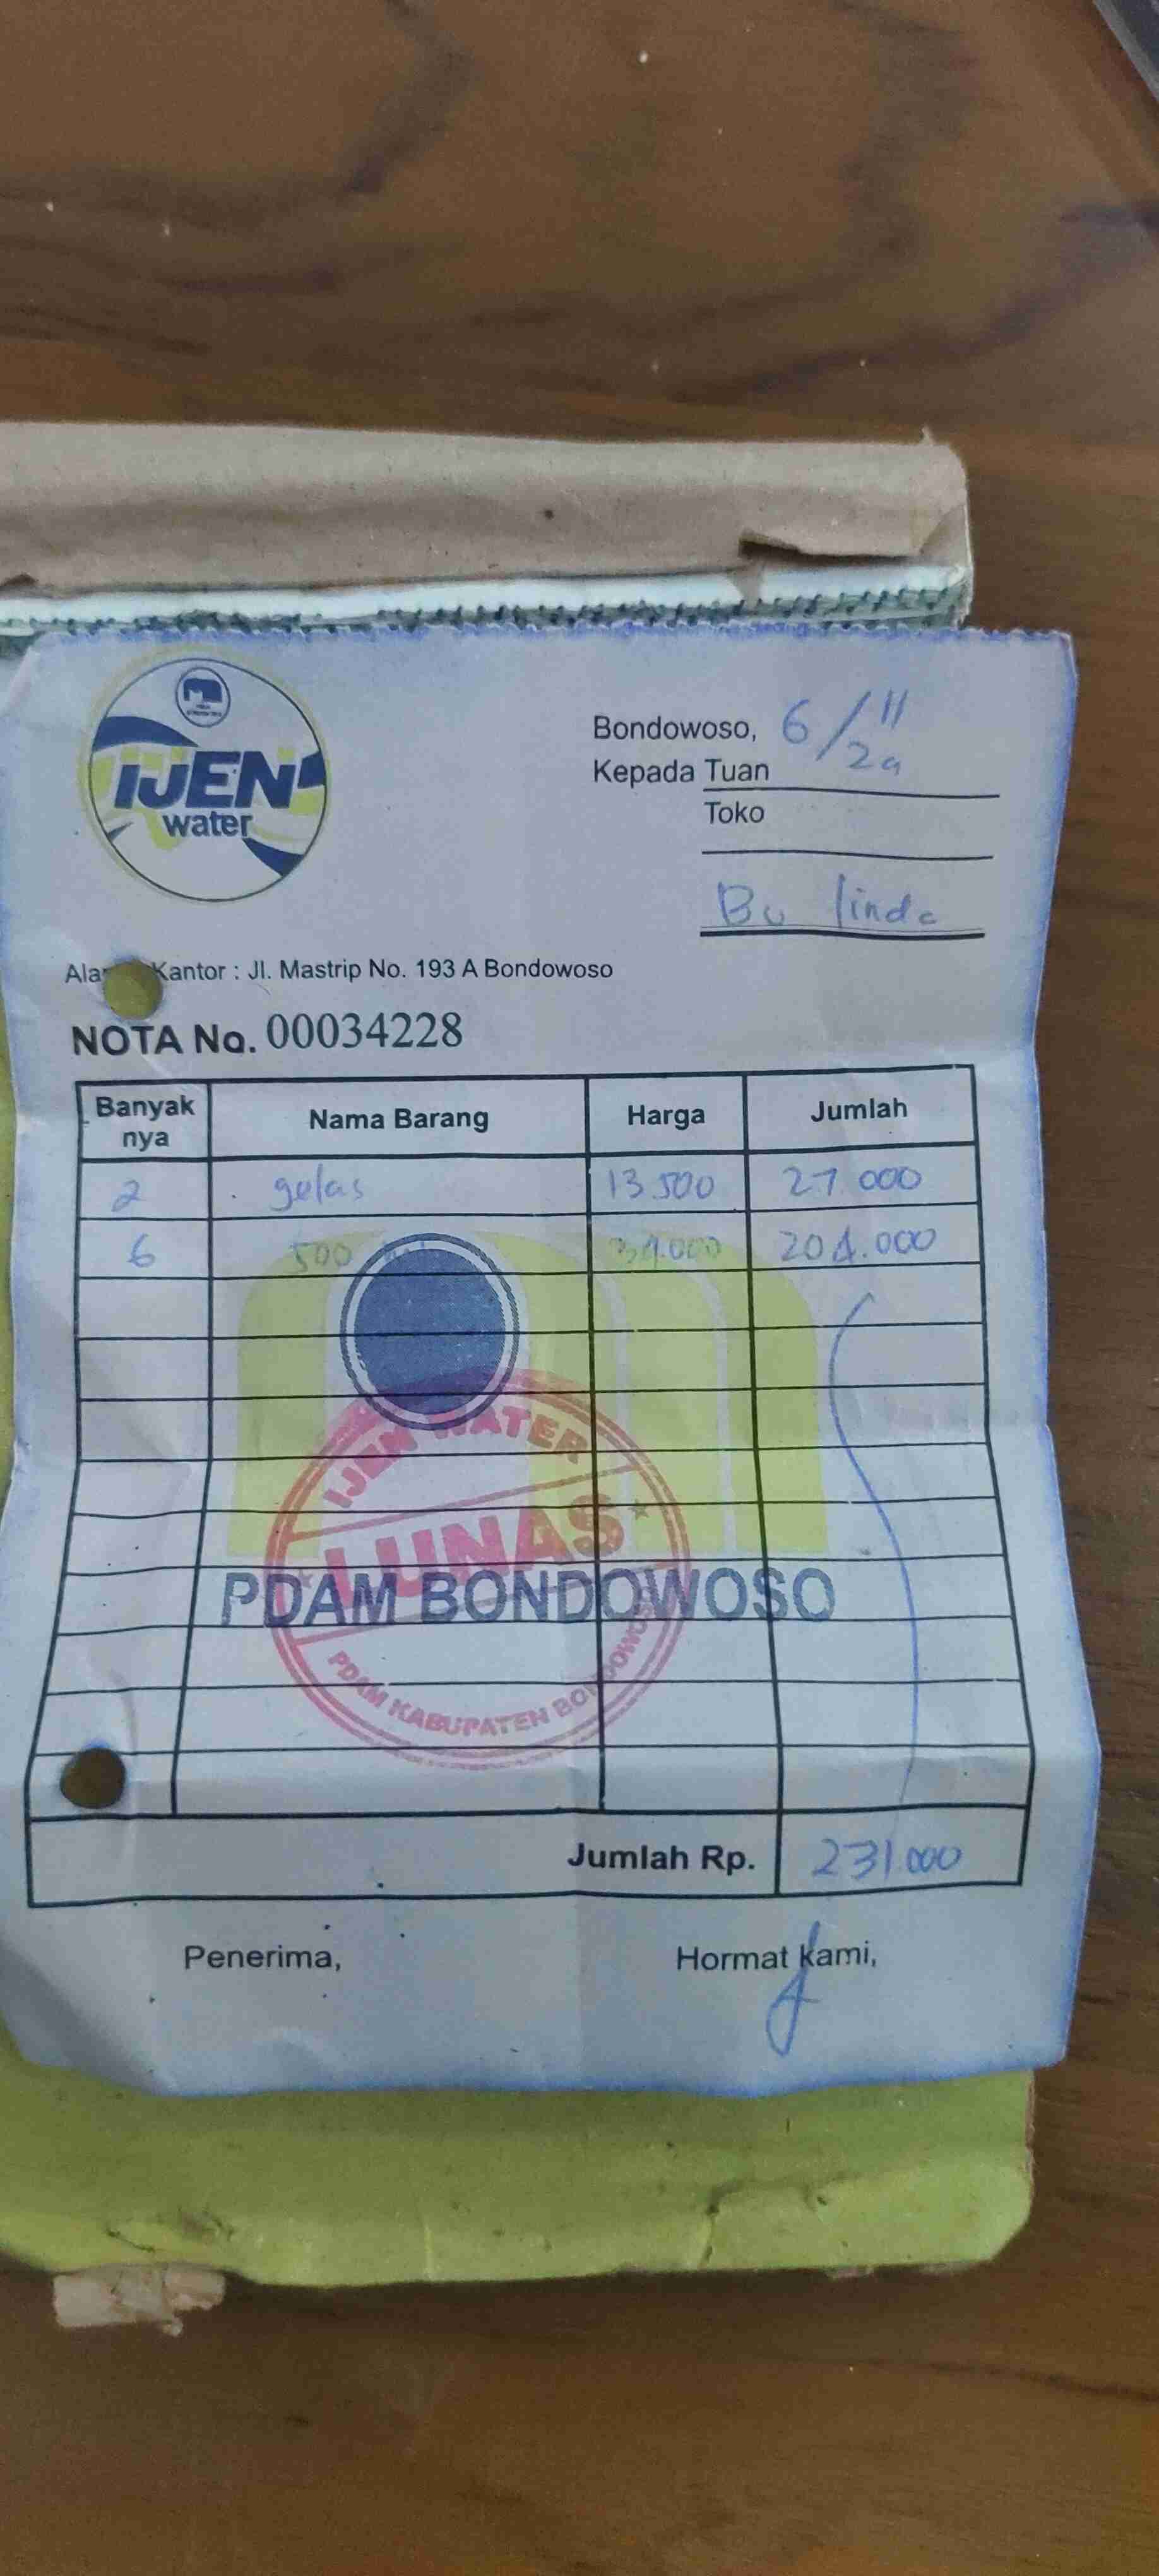 IJEN
water
Bondowoso, 6/11
Kepada Tuan
Toko
Bu linda
Kantor : Jl. Mastrip No. 193 A Bondowoso
NOTA No. 00034228
Banyak nya Nama Barang Harga Jumlah
2 gelas 13.500 27.000
6 500 34.000 204.000
IJEN WATER
LUNAS
PDAM BONDOWOSO
PDAM KABUPATEN BONDOWOSO
Jumlah Rp. 231.000
Penerima, Hormat kami,